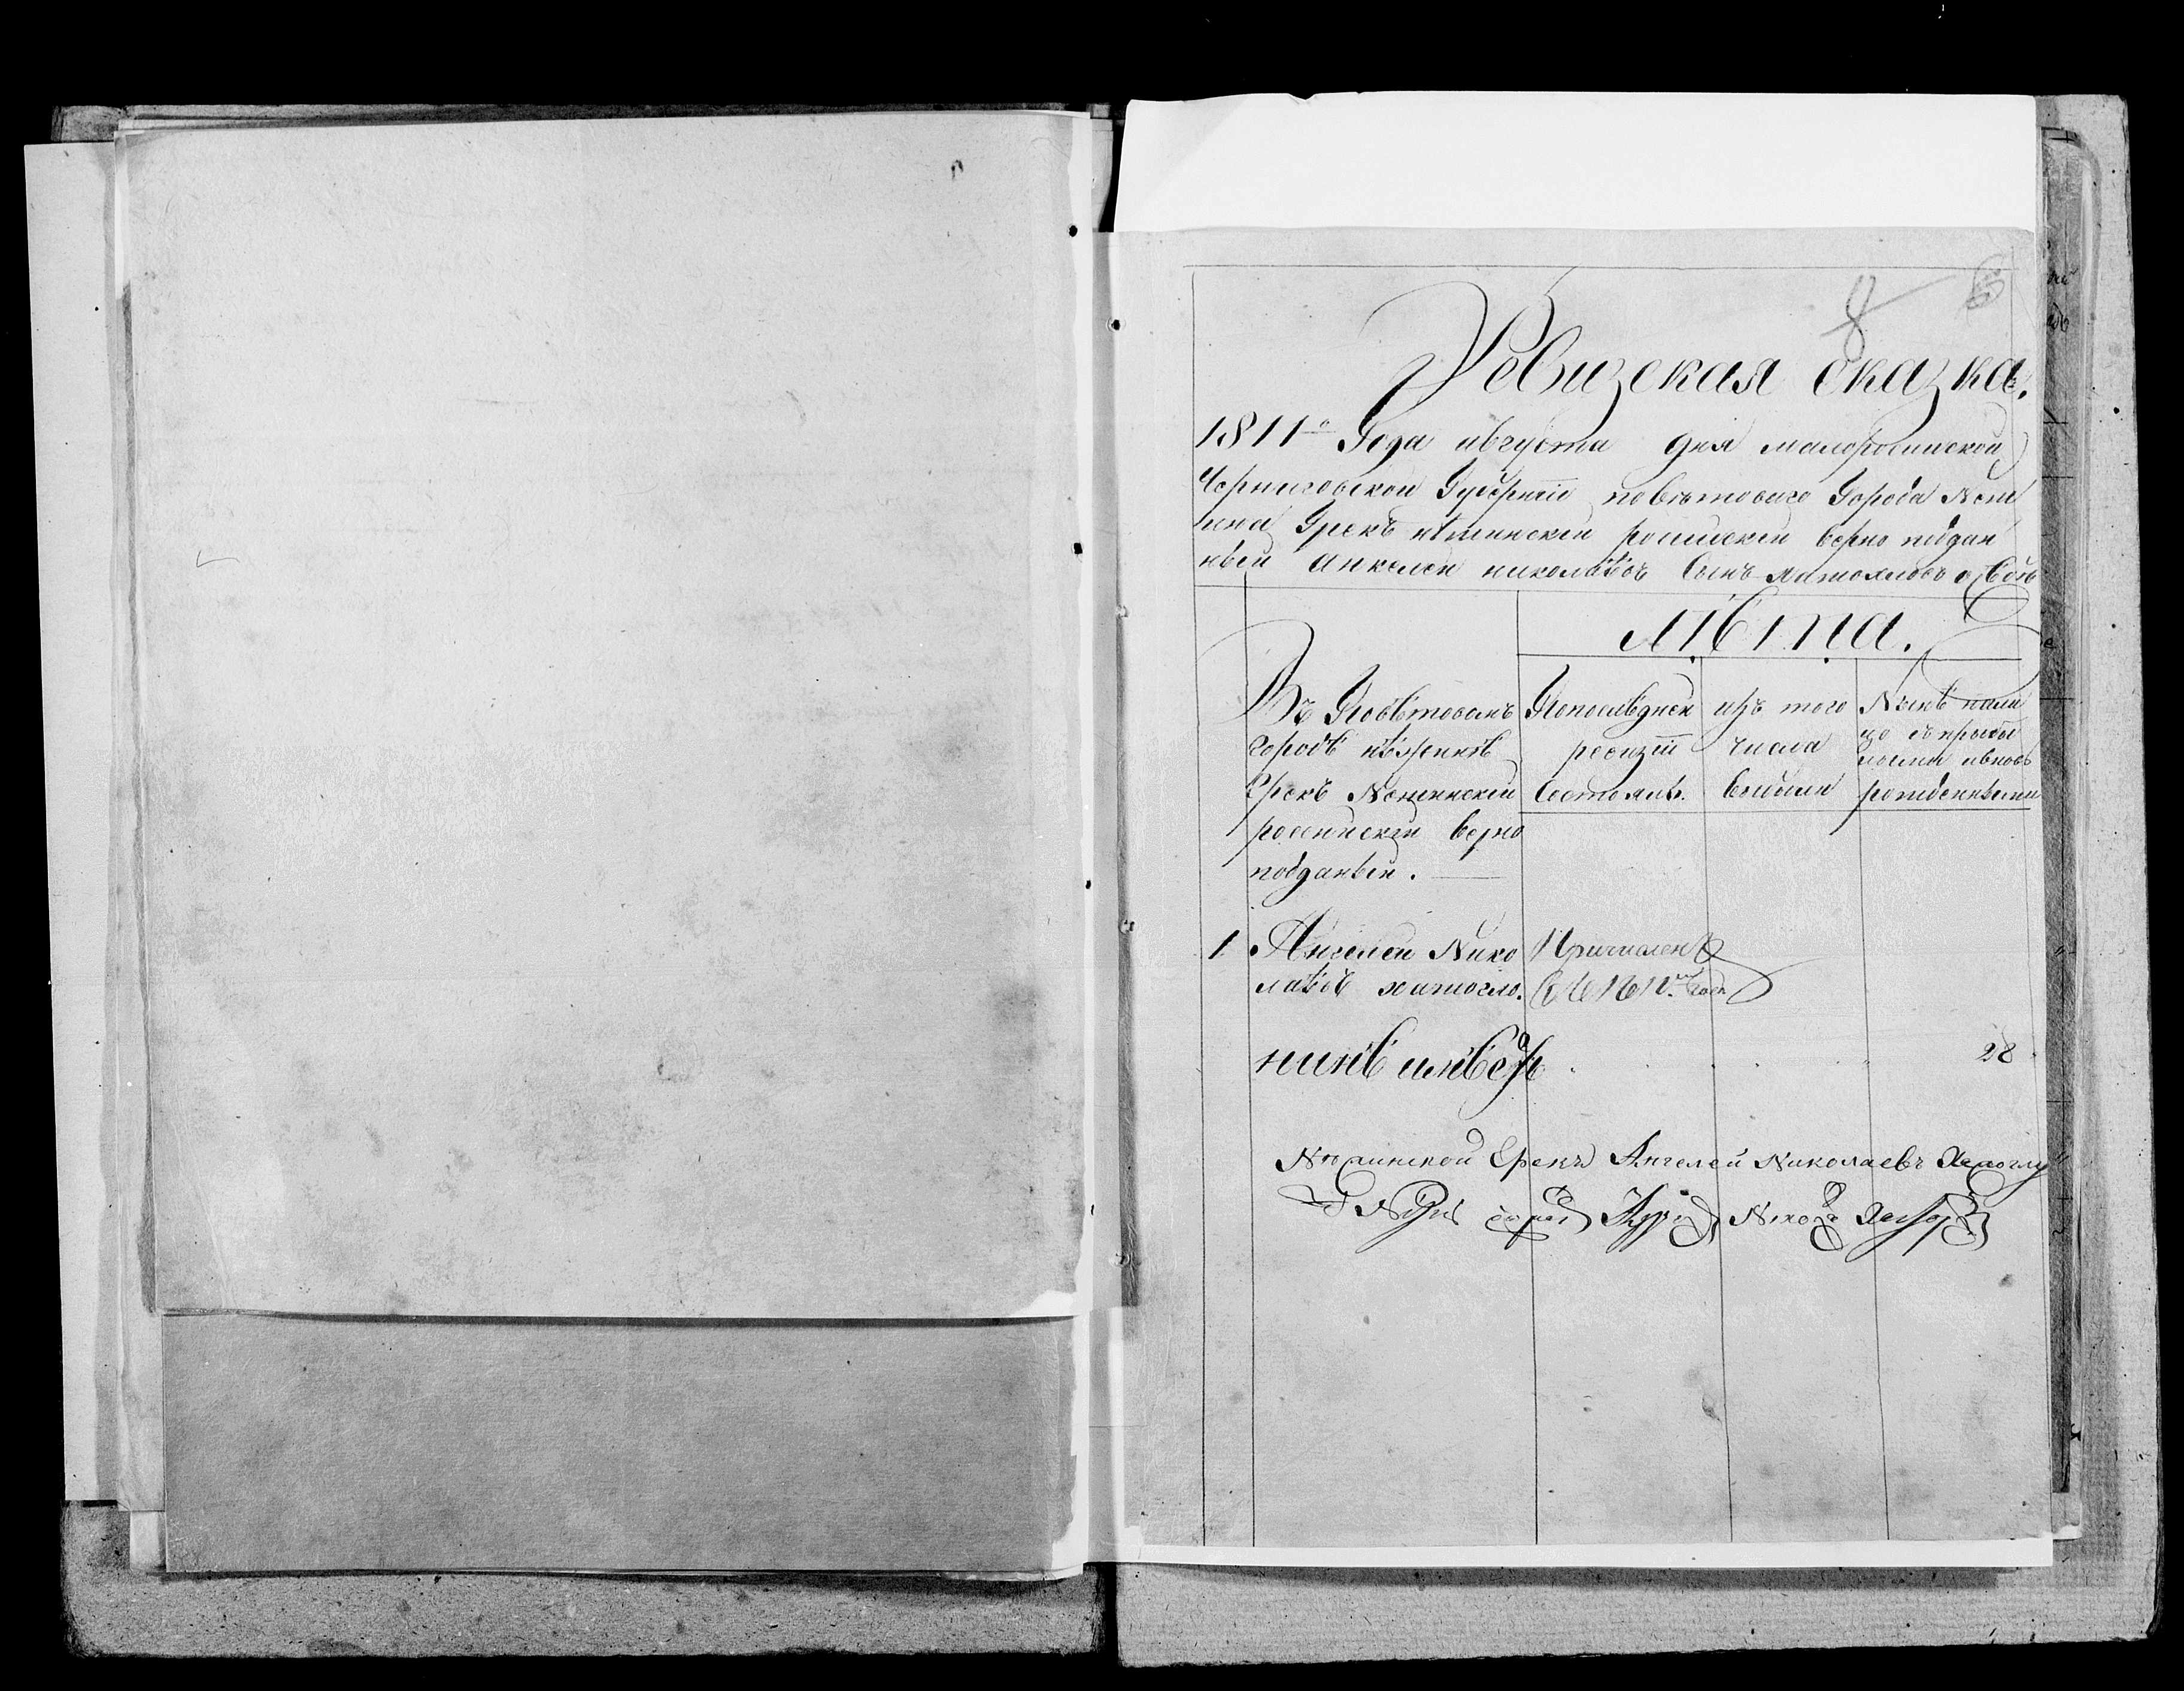 8 6
Ревизская сказка.
1811го Года августа дня малоросииской
Черниговской Губернїи повѣтоваго Города Неж
ина Грекъ нѣжинскїи росиискїи верно подан
ный Ангелеи николаевъ Сынъ
Лѣта.
Въ Повѣтовомъ
Городѣ нѣжинѣ
Грекъ Нежинскїи
россиискїи верно
подданыи.
Попоследнеи
ревизїи
Состояло.
изъ того
числа
выбыли
Нынѣ нали
цо съ прибы
лыми ивновь
рожденными
1 Ангелеи Нико
лаевъ хатогло.
Причислен
году
нынѣ имѣетъ . . . . . 28
Нѣжинской Грекъ Ангелей Николаевъ